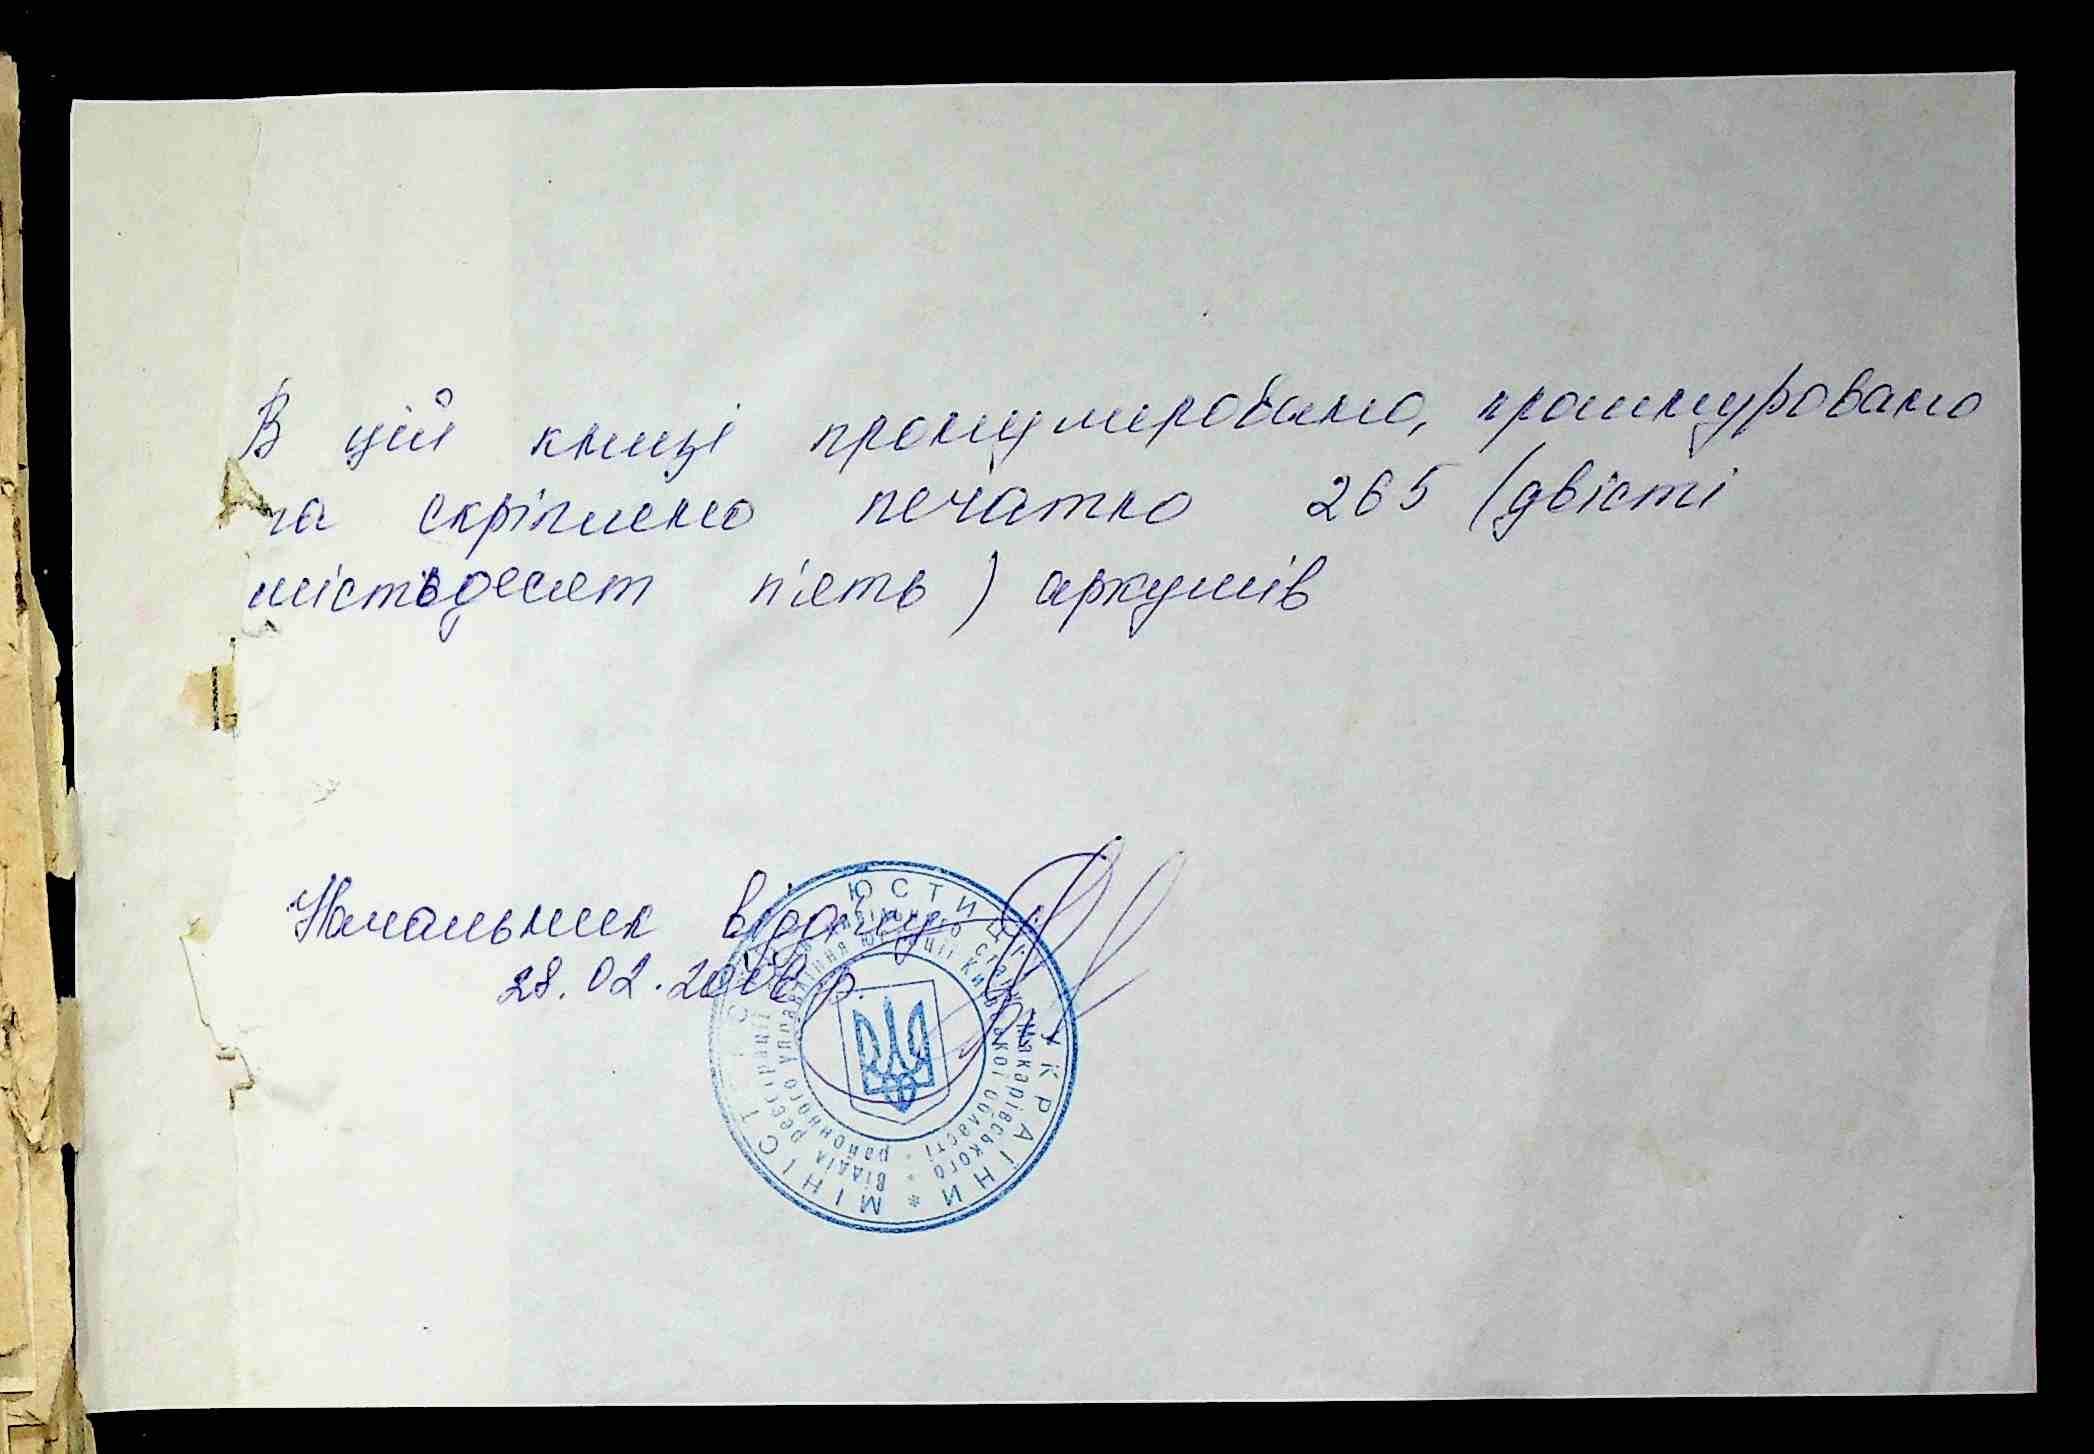 В цій книзі пронумеровано, прошнуровано
та скріплено печатко 265 (двісті
шістьдесят п'ять) аркушів
Начальник відділу
28.02.2008 р.
МІНІСТЕРСТВО ЮСТИЦІЇ УКРАЇНИ *
Відділ реєстрації актів цивільного стану Макарівського *
районного управління юстиції Київської області *